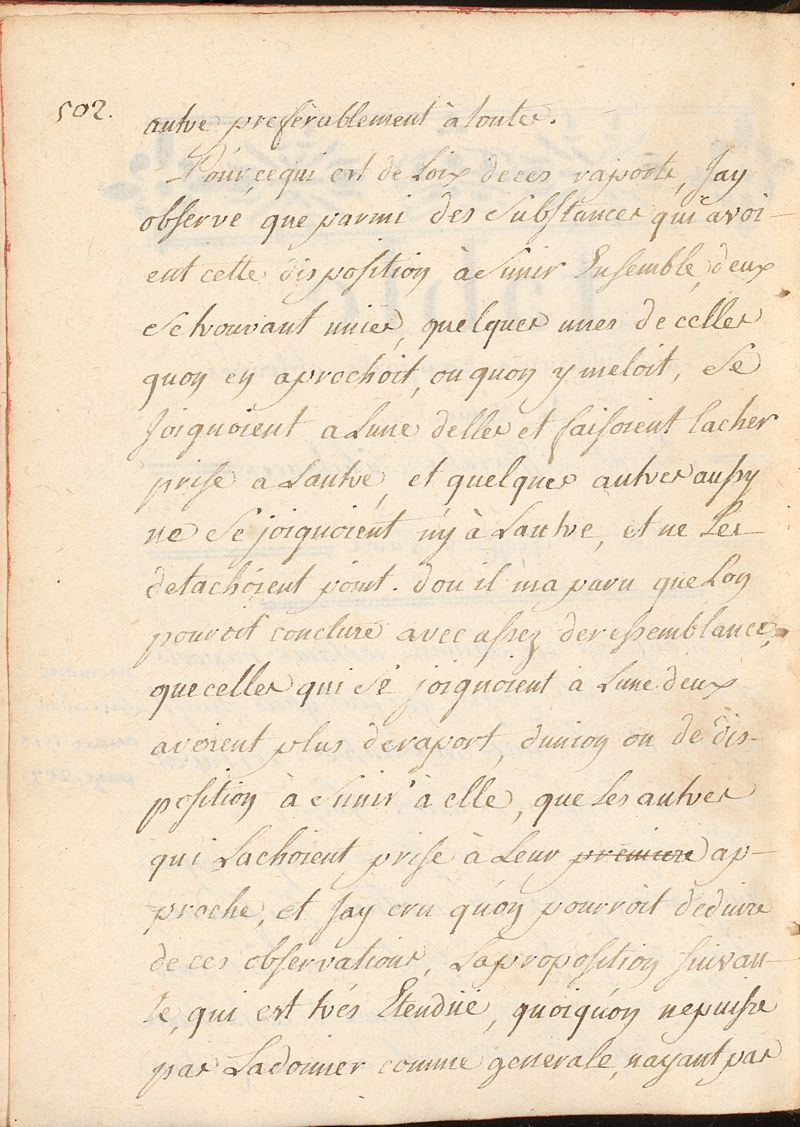 502.
autre preferablement à toutes.
Pour cequi est de Loix deces raports, Jay
observé que parmi des substances qui avoi-
ent cette disposition à Sunir Ensemble, deux
Setrouvant unies, quelques unes de celles
quon en aprochoit, ou quon y meloit, Se
Joignoient a Lune delles et faisoient lacher
prise a Lautre, et quelques autres aussy
ne Se joignoient ny à Lautre, et ne Les
detachoient point. dou il ma paru que Lon
pouroit conclure avec assez deressemblance,
que celles qui Se joignoient à Lune deux
avoient plus deraport, dunion ou de dis-
position à Sunir à elle, que Les autres
qui Lachoient prise à Leur premiere ap-
proche, et Jay cru quon pourroit deduire
de ces observations, Laproposition suivan-
te, qui est trés Etendüe, quoiquon nepuisse
pas Ladonner comme generale, nayant pas